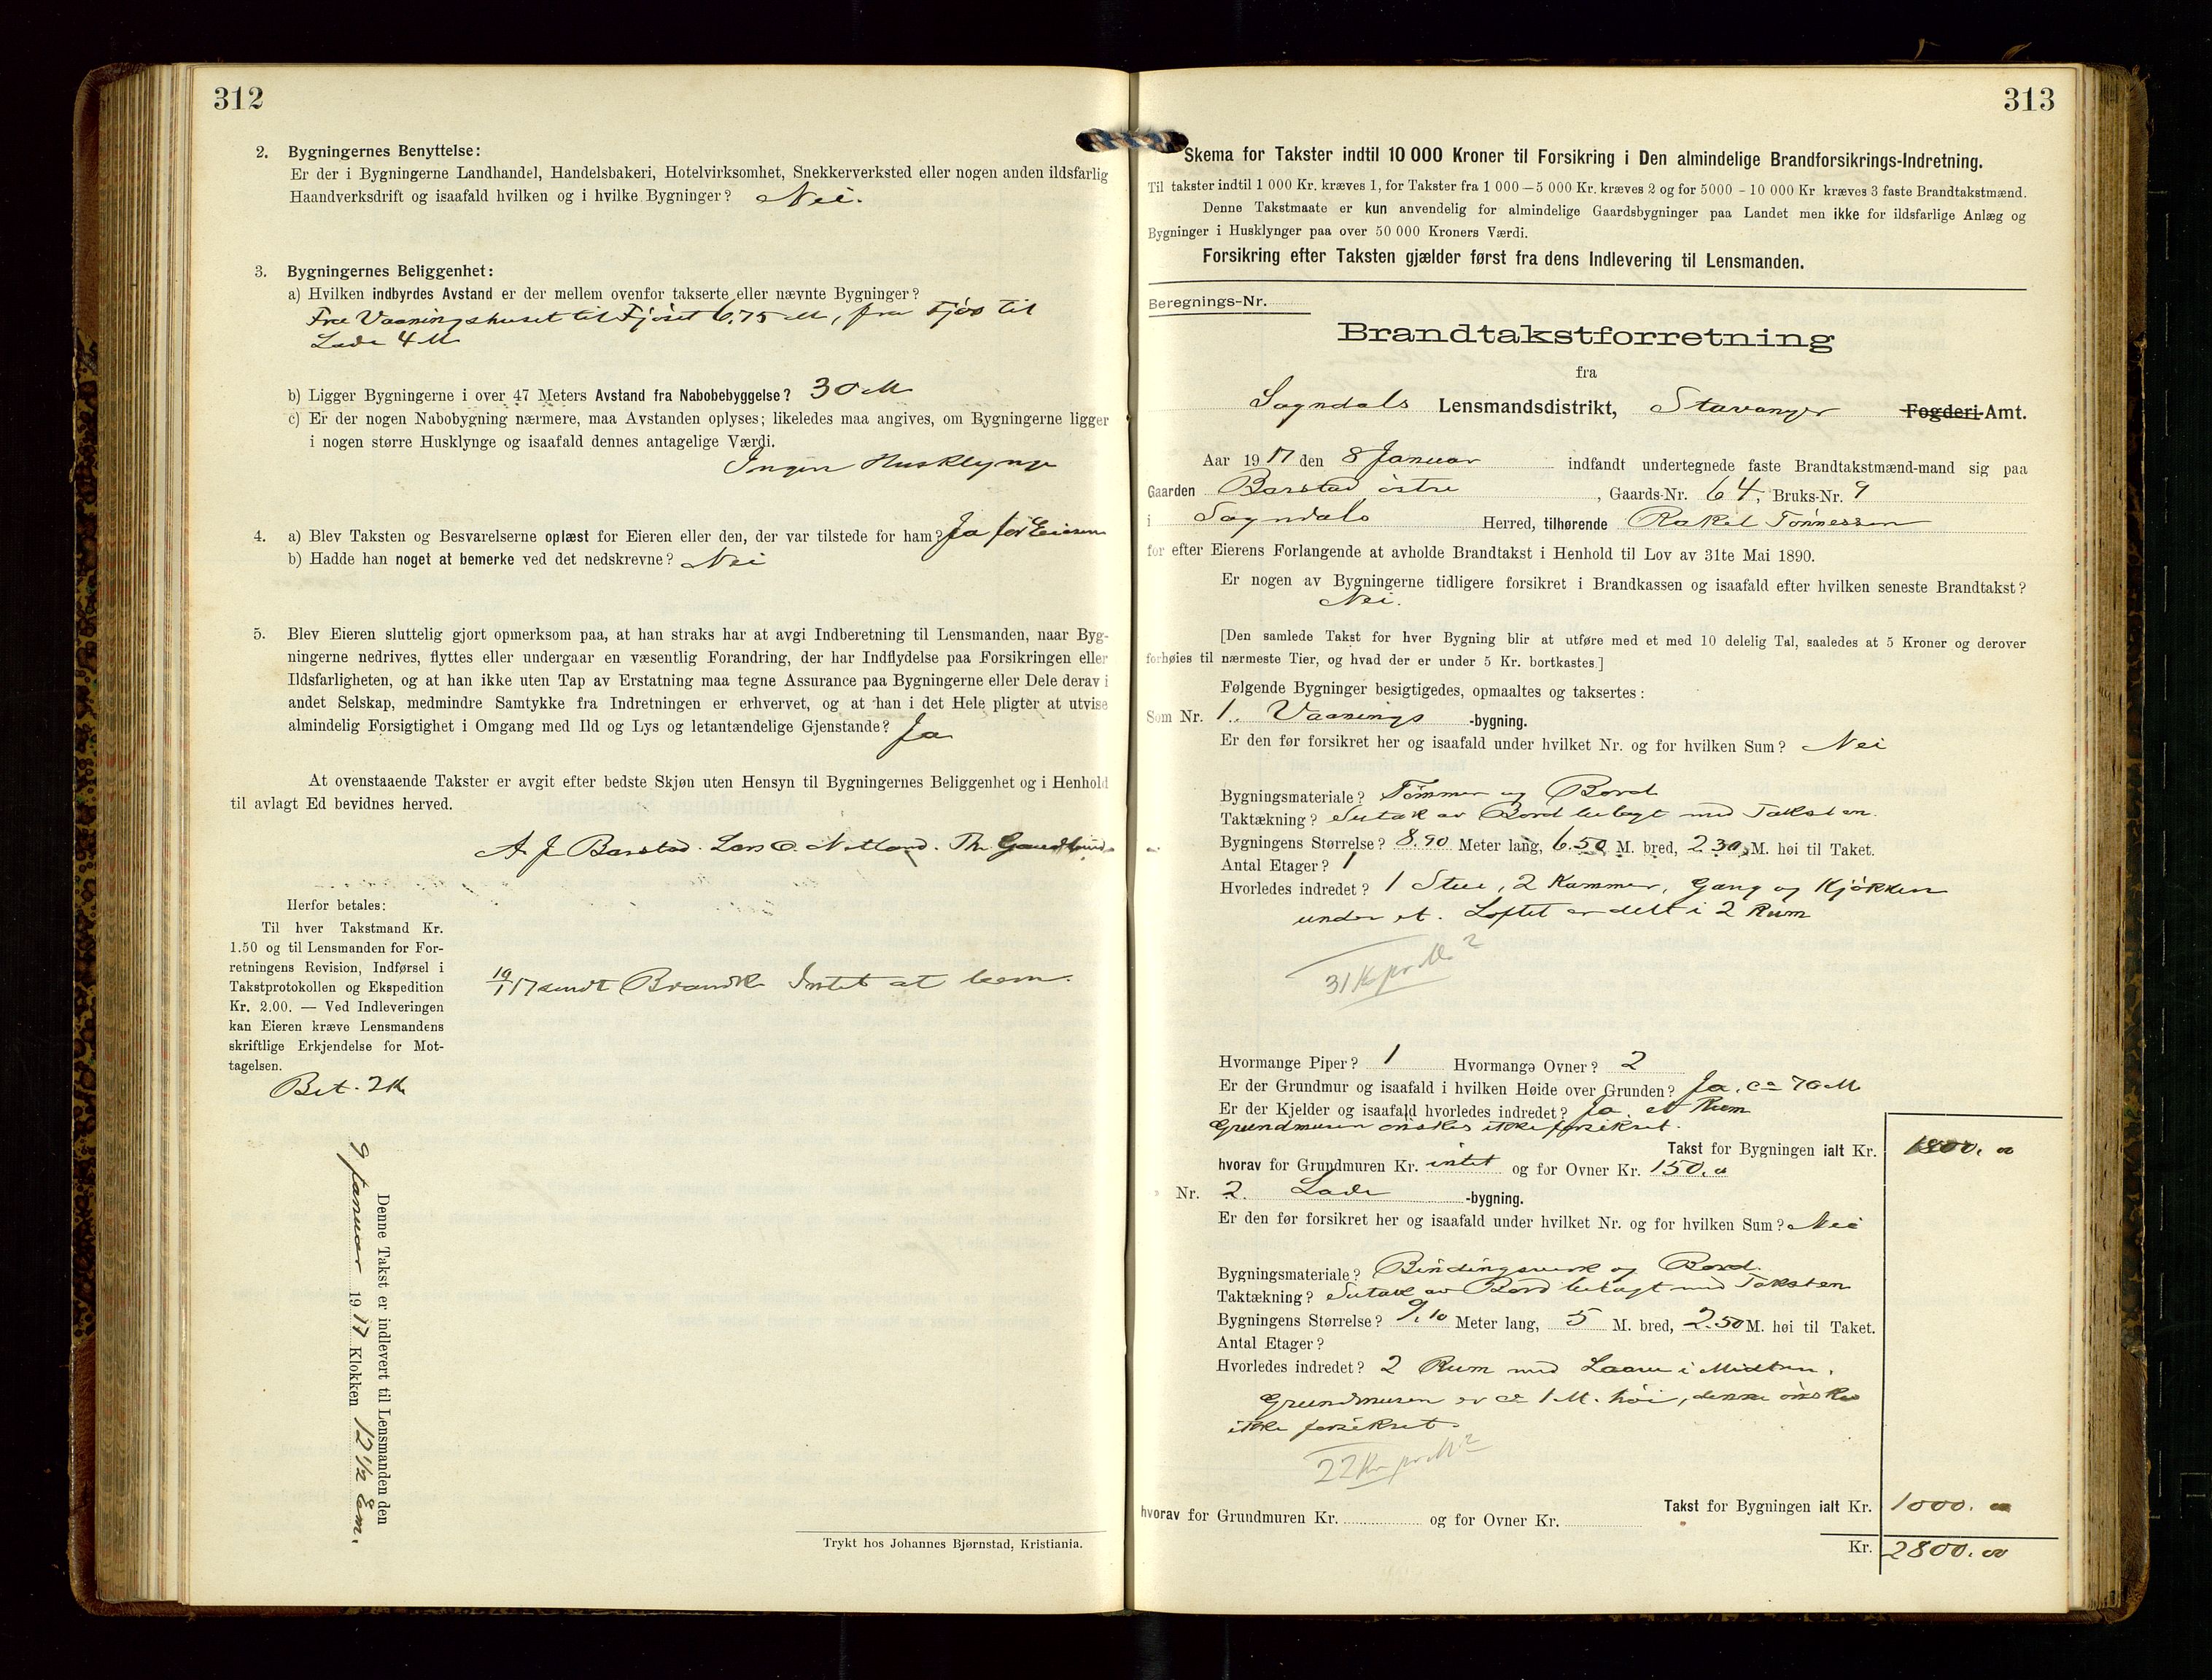 312
2. Bygningernes Benyttelse:
Er der i Bygningerne Landhandel, Handelsbakeri, Hotelvirksomhet, Snekkerverksted eller nogen anden ildsfarlig
Haandverksdrift og isaafald hvilken og i hvilke Bygninger? Nei.
3. Bygningernes Beliggenhet:
a) Hvilken indbyrdes Avstand er der mellem ovenfor takserte eller nævnte Bygninger?
Fra Vaaningshuset til Fjøset 6,75 M, fra Fjøs til
Lade 4 M
b) Ligger Bygningerne i over 47 Meters Avstand fra Nabobebyggelse? 30 M
c) Er der nogen Nabobygning nærmere, maa Avstanden oplyses; likeledes maa angives, om Bygningerne ligger
i nogen større Husklynge og isaafald dennes antagelige Værdi.
Ingen Husklynge
4. a) Blev Taksten og Besvarelserne oplæst for Eieren eller den, der var tilstede for ham? Ja for Eieren
b) Hadde han noget at bemerke ved det nedskrevne? Nei
5. Blev Eieren sluttelig gjort opmerksom paa, at han straks har at avgi Indberetning til Lensmanden, naar Byg-
ningerne nedrives, flyttes eller undergaar en væsentlig Forandring, der har Indflydelse paa Forsikringen eller
Ildsfarligheten, og at han ikke uten Tap av Erstatning maa tegne Assurance paa Bygningerne eller Dele derav i
andet Selskap, medmindre Samtykke fra Indretningen er erhvervet, og at han i det Hele pligter at utvise
almindelig Forsigtighet i Omgang med Ild og Lys og letantændelige Gjenstande? Ja
At ovenstaaende Takster er avgit efter bedste Skjøn uten Hensyn til Bygningernes Beliggenhet og i Henhold
til avlagt Ed bevidnes herved.
A J Barstad. Lars O. Netland. Th.
Herfor betales:
Til hver Takstmand Kr.
1.50 og til Lensmanden for For-
retningens Revision, Indførsel i
Takstprotokollen og Ekspedition
Kr. 2.00. — Ved Indleveringen
kan Eieren kræve Lensmandens
skriftlige Erkjendelse for Mot-
tagelsen.
Bet. 2 K
19/1 17 sendt Brandk. Intet at bem.
Denne Takst er indlevert til Lensmanden den
9 Januar 1917 Klokken 12 1/2 Em.
Trykt hos Johannes Bjørnstad, Kristiania.
313
Skema for Takster indtil 10 000 Kroner til Forsikring i Den almindelige Brandforsikrings-Indretning.
Til takster indtil 1 000 Kr. kræves 1, for Takster fra 1 000 — 5 000 Kr. kræves 2 og for 5000 - 10 000 Kr kræves 3 faste Brandtakstmænd.
Denne Takstmaate er kun anvendelig for almindelige Gaardsbygninger paa Landet men ikke for ildsfarlige Anlæg og
Bygninger i Husklynger paa over 50 000 Kroners Værdi.
Forsikring efter Taksten gjælder først fra dens Indlevering til Lensmanden.
Beregnings-Nr.
Brandtakstforretning
fra
Sogndals Lensmandsdistrikt, Stavanger Fogderi-Amt.
Aar 1917 den 8 Januar indfandt undertegnede faste Brandtakstmænd-mand sig paa
Gaarden Barstad østre, Gaards-Nr. 64, Bruks-Nr. 9
i Sogndals Herred, tilhørende Rakel Tønnessen
for efter Eierens Forlangende at avholde Brandtakst i Henhold til Lov av 31te Mai 1890.
Er nogen av Bygningerne tidligere forsikret i Brandkassen og isaafald efter hvilken seneste Brandtakst?
Nei.
[Den samlede Takst for hver Bygning blir at utføre med et med 10 delelig Tal, saaledes at 5 Kroner og derover
forhøies til nærmeste Tier, og hvad der er under 5 Kr. bortkastes.]
Følgende Bygninger besigtigedes, opmaaltes og taksertes:
Som Nr. 1. Vaanings -bygning.
Er den før forsikret her og isaafald under hvilket Nr. og for hvilken Sum? Nei
Bygningsmateriale? Tømmer og Bord
Taktækning? Sutak av Bord belagt med Taksten.
Bygningens Størrelse? 8.90 Meter lang, 6.50 M. bred, 2.30 M. høi til Taket.
Antal Etager? 1
Hvorledes indredet? 1 Stue, 2 Kammer, Gang og Kjøkken
under et. Loftet er delt i 2 Rum
31 K pr M²
Hvormange Piper? 1 Hvormange Ovner? 2
Er der Grundmur og isaafald i hvilken Høide over Grunden? Ja. ca 70 M
Er der Kjelder og isaafald hvorledes indredet? Ja. et Rum
Grundmuren ønskes ikke forsikret.
Takst for Bygningen ialt Kr. 1800. 00
hvorav for Grundmuren Kr. intet og for Ovner Kr. 150.00
Nr. 2. Lade -bygning.
Er den før forsikret her og isaafald under hvilket Nr. og for hvilken Sum? Nei
Bygningsmateriale? Bindingsverk og Bord.
Taktækning? Sutak av Bord belagt med Taksten
Bygningens Størrelse? 9.10 Meter lang, 5 M. bred, 2.50 M. høi til Taket.
Antal Etager?
Hvorledes indredet? 2 Rum med Laave i Midten.
Grundmuren er ca 1 M. høi, denne ønskes
ikke forsikret.
22 Kr pr M²
Takst for Bygningen ialt Kr. 1000. 00
hvorav for Grundmuren Kr. og for Ovner Kr.
Kr. 2800. 00